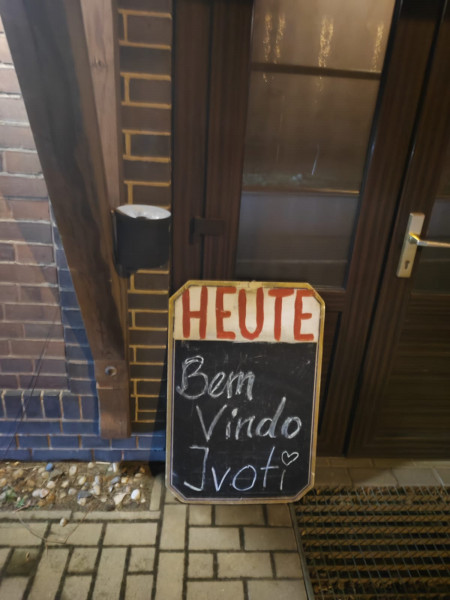 HEUTE
Bem
Vindo
Ivoti